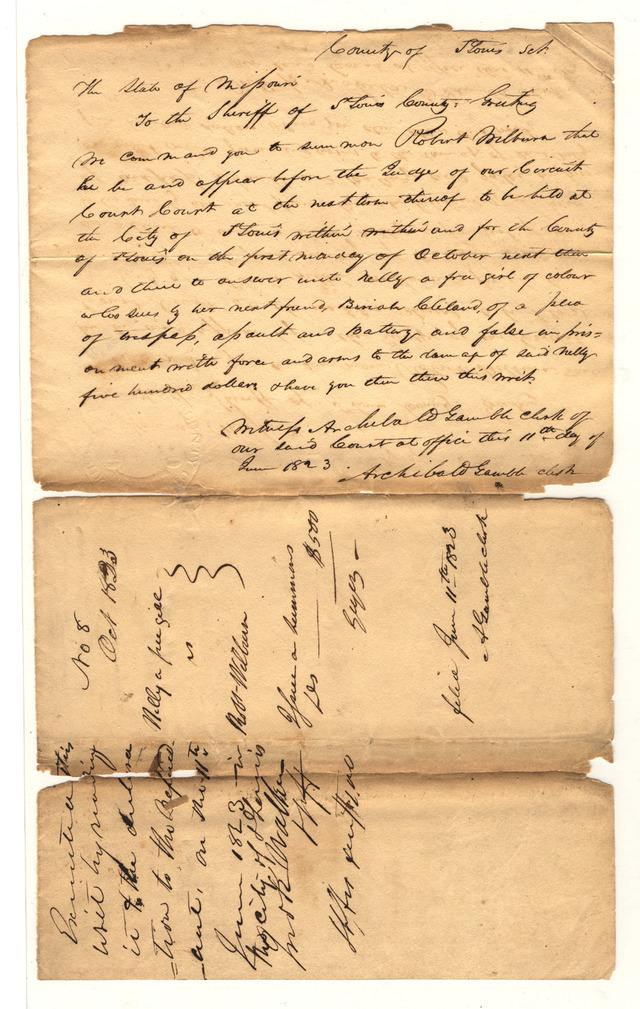 County of St Louis Sct
The State of Missouri
To the Sheriff of St Louis County: Greeting
We command you to summon Robert Wilburn that
he be and appear before the Judge of our Circuit
Court Court at the next term thereof to be held at
the City of St Louis within within and for the County
of St Louis on the first monday of October next then
and there to answer unto Nelly a free girl of colour
who sues by her next friend, Beriah Cleland, of a plea
of trespass, assault and Battery and false impris=
onment with force and arms to the damage of said Nelly
five hundred dollars & have you then there this writ
Witness Archibald Gamble clerk of
our said Court at office this 11th day of
June 1823
Archibald Gamble clerk
No 8
Oct 1823
Nelly a free girl
vs
Robt Wilburn
Issue a summons
$500
Geyer
filed June 11th 1823
A Gamble clerk
Executed this
writ by reading
it & the declara
=tion to the Defend
=ant, on the 11th
June 1823 in
the city of St Louis
Jno K Walker
Shff